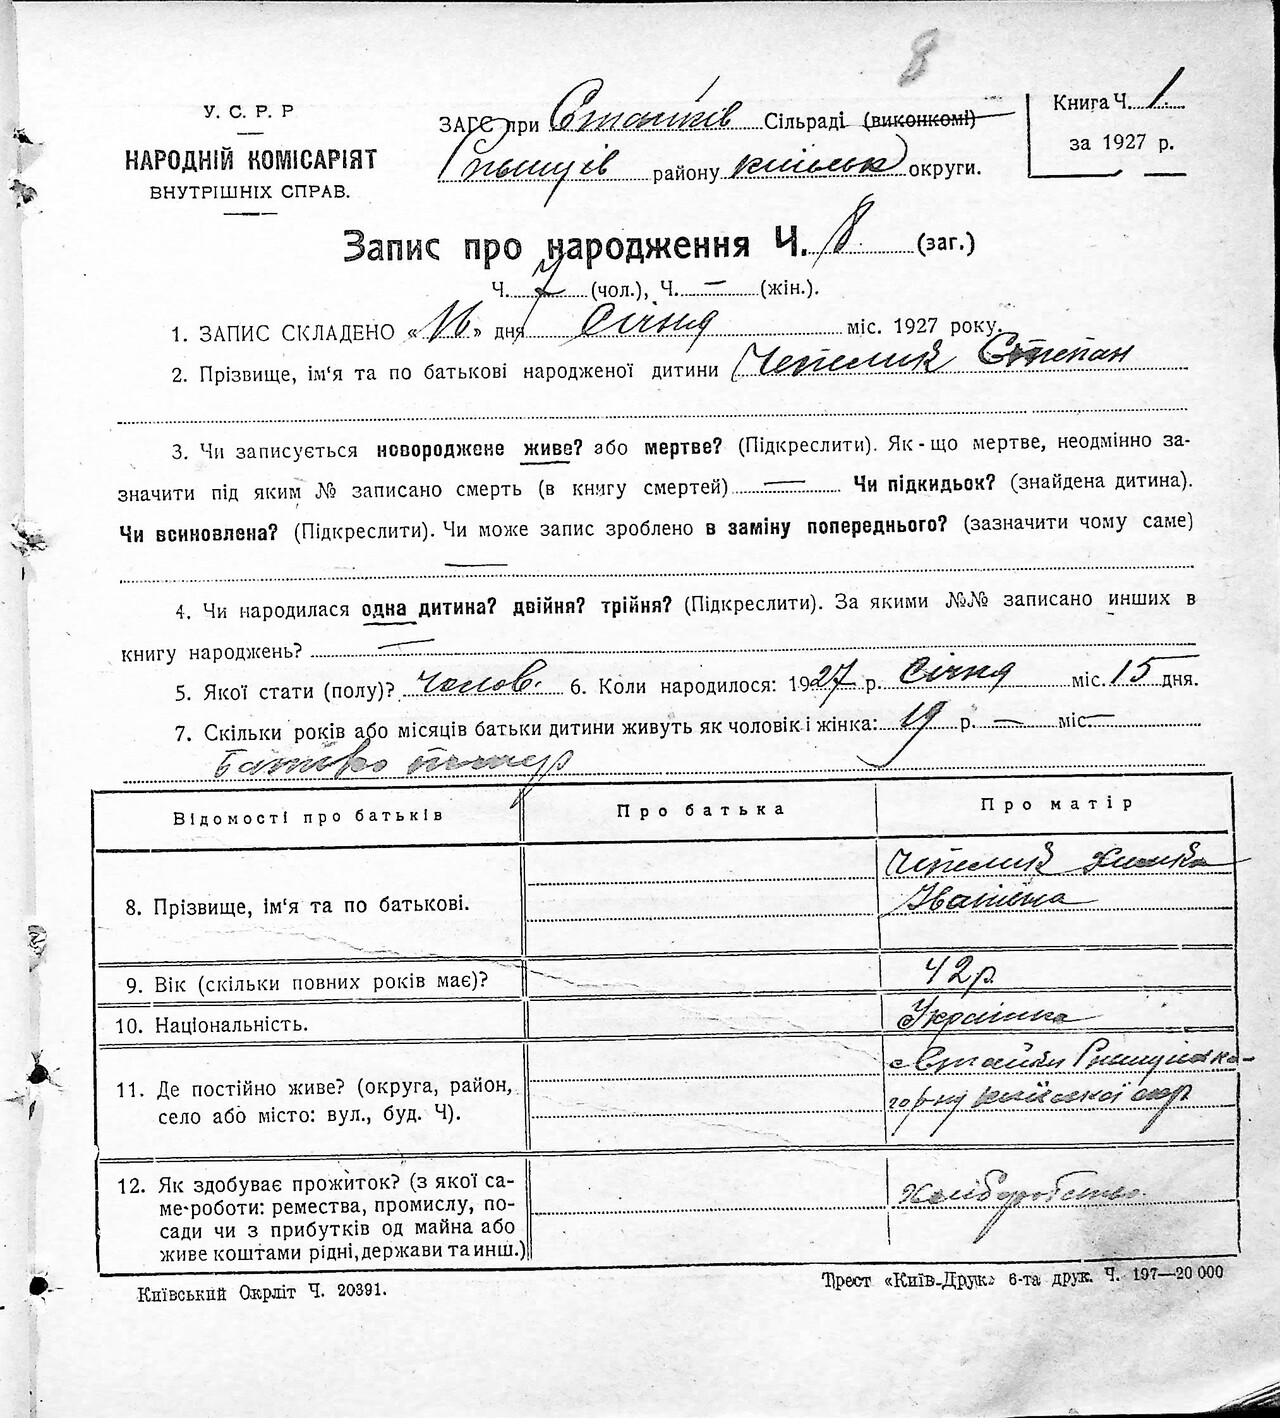 8
У. С. Р. Р
НАРОДНІЙ КОМІСАРІЯТ
ВНУТРІШНІХ СПРАВ.
ЗАГС при Стайків Сільраді (виконкомі)
Ржищів району київськ округи.
Книга Ч. 1.
за 1927 р.
Запис про народження Ч. 8 (заг.)
Ч. 7 (чол.), Ч. — (жін.).
1. ЗАПИС СКЛАДЕНО «16» дня Січня міс. 1927 року.
2. Прізвище, ім‘я та по батькові народженої дитини Чепелик Степан
3. Чи записується новороджене живе? або мертве? (Підкреслити). Як-що мертве, неодмінно за-
значити під яким № записано смерть (в книгу смертей) — Чи підкидьок? (знайдена дитина).
Чи всиновлена? (Підкреслити). Чи може запис зроблено в заміну попереднього? (зазначити чому саме)
—
4. Чи народилася одна дитина? двійня? трійня? (Підкреслити). За якими №№ записано инших в
книгу народжень? —
5. Якої стати (полу)? чолов. 6. Коли народилося: 1927 р. Січня міс. 15 дня.
7. Скільки років або місяців батьки дитини живуть як чоловік і жінка: 19 р. — міс —
Батько помер
Відомості про батьків
Про батька
Про матір
8. Прізвище, ім‘я та по батькові.
Чепелик Химка
Іванівна
9. Вік (скільки повних років має)?
42 р.
10. Національність.
Українка
11. Де постійно живе? (округа, район,
село або місто: вул., буд. Ч).
с Стайки Ржищівсько-
го р-ну київської окр
12. Як здобуває прожиток? (з якої са-
ме-роботи: ремества, промислу, по-
сади чи з прибутків од майна або
живе коштами рідні, держави та инш.)
Хліборобство.
Київський Окрліт Ч. 20391.
Трест «Київ-Друк» 6-та друк. Ч. 197—20 000